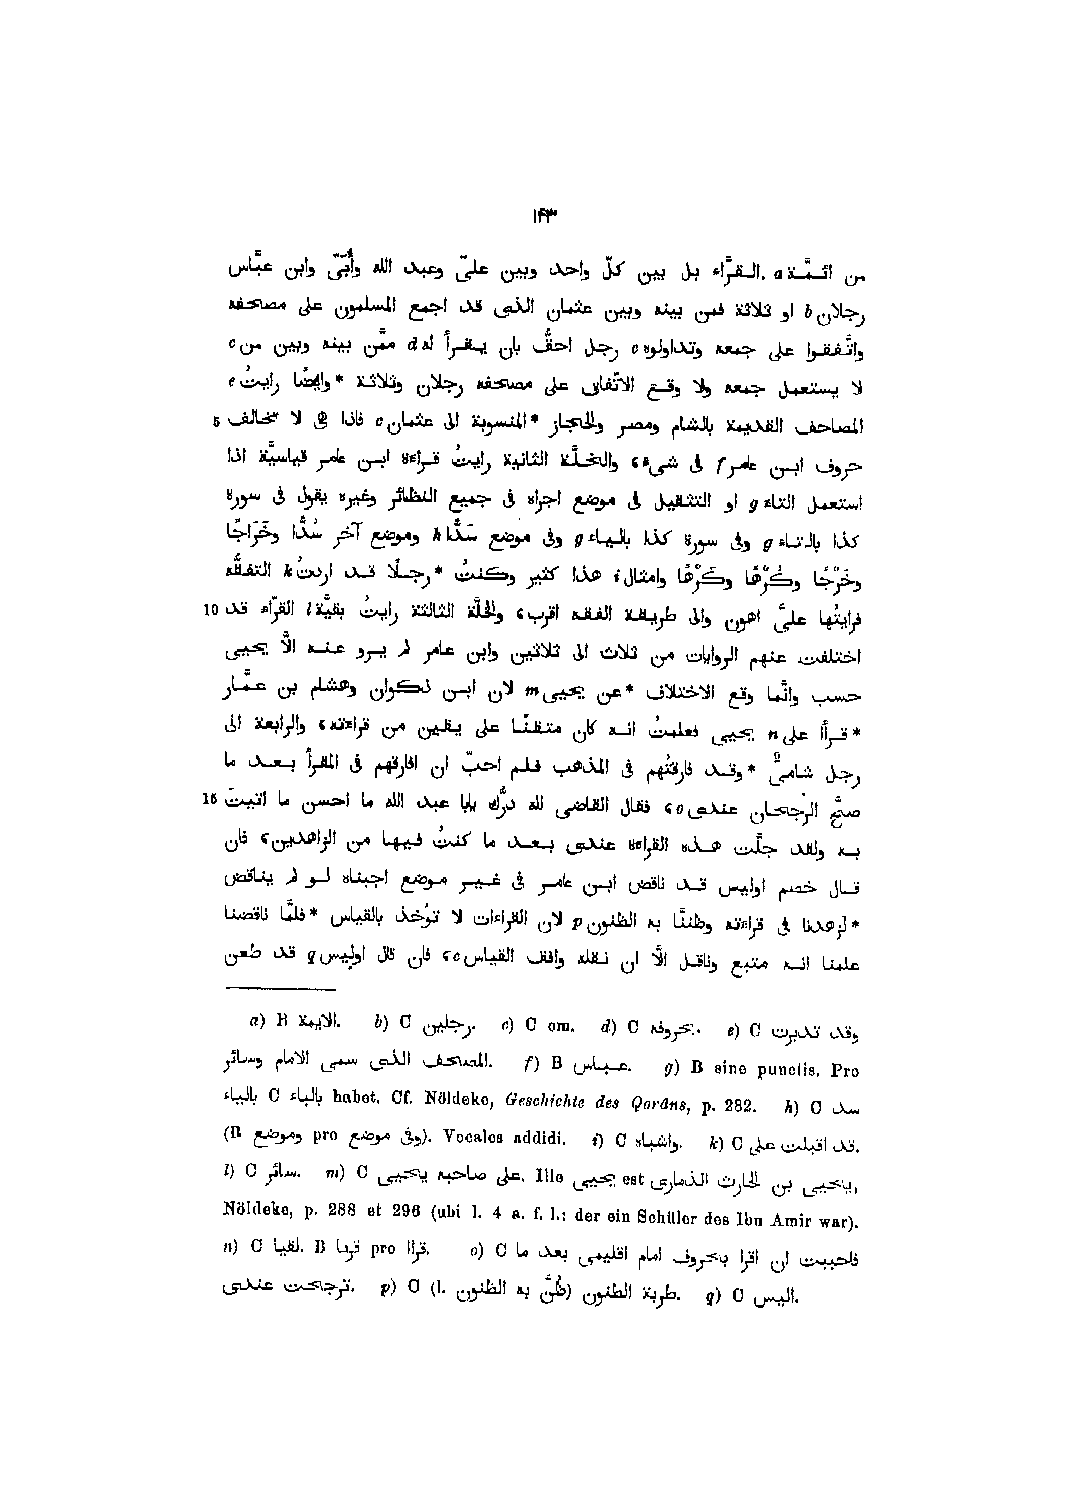 ١٤٣
من ائمَّة a القرَّاء بل بين كلّ واحد وبين علىّ وعبد الله وأُبَىّ وابن عبَّاس
رجلان b او ثلاثة فمن بينه وبين عثمان الذى قد اجمع المسلمون على مصاحفه
واتَّفقوا على جمعه وتداولوه c رجل احقُّ بان يقرأ له d ممَّن بينه وبين من c
لا يستعمل جمعه ولا وقع الاتّفاق على مصاحفه رجلان وثلاثة *وايضًا رايتُ e
المصاحف القديمة بالشام ومصر والحجاز *المنسوبة الى عثمان c فاذا هى لا تخالف 5
حروف ابن عامر f فى شىء، والخلَّة الثانية رايتُ قراءة ابن عامر قياسيَّة اذا
استعمل التاء g او التثقيل فى موضع اجراه فى جميع النظائر وغيره يقول فى سورة
كذا بالتاء g وفى سورة كذا بالياء g وفى موضع سَدًّا h وموضع آخر سُدًّا وخَرَاجًا
وخَرْجًا وكُرْهًا وكَرْهًا وامثال i هذا كثير وكنتُ *رجلًا قد اردتُ k التفقُّه
فرايتُها علىَّ اهون والى طريقة الفقه اقرب، والخلَّة الثالثة رايتُ بقيَّة l القرّاء قد 10
اختلفت عنهم الروايات من ثلاث الى ثلاثين وابن عامر لم يرو عنه الَّا يحيى
حسب وانَّما وقع الاختلاف *عن يحيى m لان ابن ذكوان وهشام بن عمَّار
*قرأا على n يحيى فعلمتُ انه كان متقنًا على يقين من قراءته، والرابعة انى
رجل شامىٌّ *وقد فارقتُهم فى المذهب فلم احبّ ان افارقهم فى المقرأ بعد ما
صحَّ الرُّجحان عندى o، فقال القاضى لله درُّك يابا عبد الله ما احسن ما اتيتَ 15
به ولقد جلَّت هذه القراءة عندى بعد ما كنتُ فيها من الزاهدين، فان
قال خصم اوليس قد ناقض ابن عامر فى غير موضع اجبناه لو لم يناقض
*لزهدنا فى قراءته وظننَّا به الظنون p لان القراءات لا تؤخذ بالقياس *فلمَّا ناقضنا
علمنا انه متبع وناقل الَّا ان نقله وافق القياس c، فان قال اوليس q قد طعن
a) B الايمة. b) C رجلين. c) C om. d) C بحروفه. e) C وقد تدبرت
المصاحف الذى سمى الامام وسائر. f) B عباس. g) B sine punctis. Pro
بالياء C بالباء habet. Cf. Nöldeke, Geschichte des Qorâns, p. 282. h) C سد
(B وموضع pro وفى موضع). Vocales addidi. i) C واشباه. k) C قد اقبلت على.
l) C سائر. m) C على صاحبه يحيى. Ille يحيى est يحيى بن الحارث الذمارى,
Nöldeke, p. 288 et 296 (ubi l. 4 a. f. l.: der ein Schüler des Ibn Amir war).
n) C لقيا. B قريا pro قرأا. o) C فاحببت ان اقرا بحروف امام اقليمى بعد ما
ترجحت عندى. p) C طربة الظنون (l. ظُنَّ به الظنون). q) C اليس.